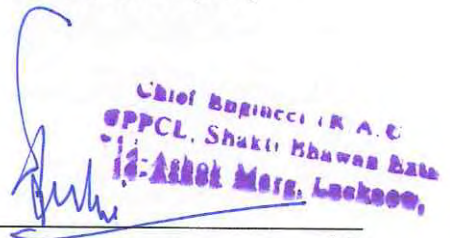 Chief Engineer (R.A.U
UPPCL, Shakti Bhawan Extn
14-Ashok Marg, Lucknow,